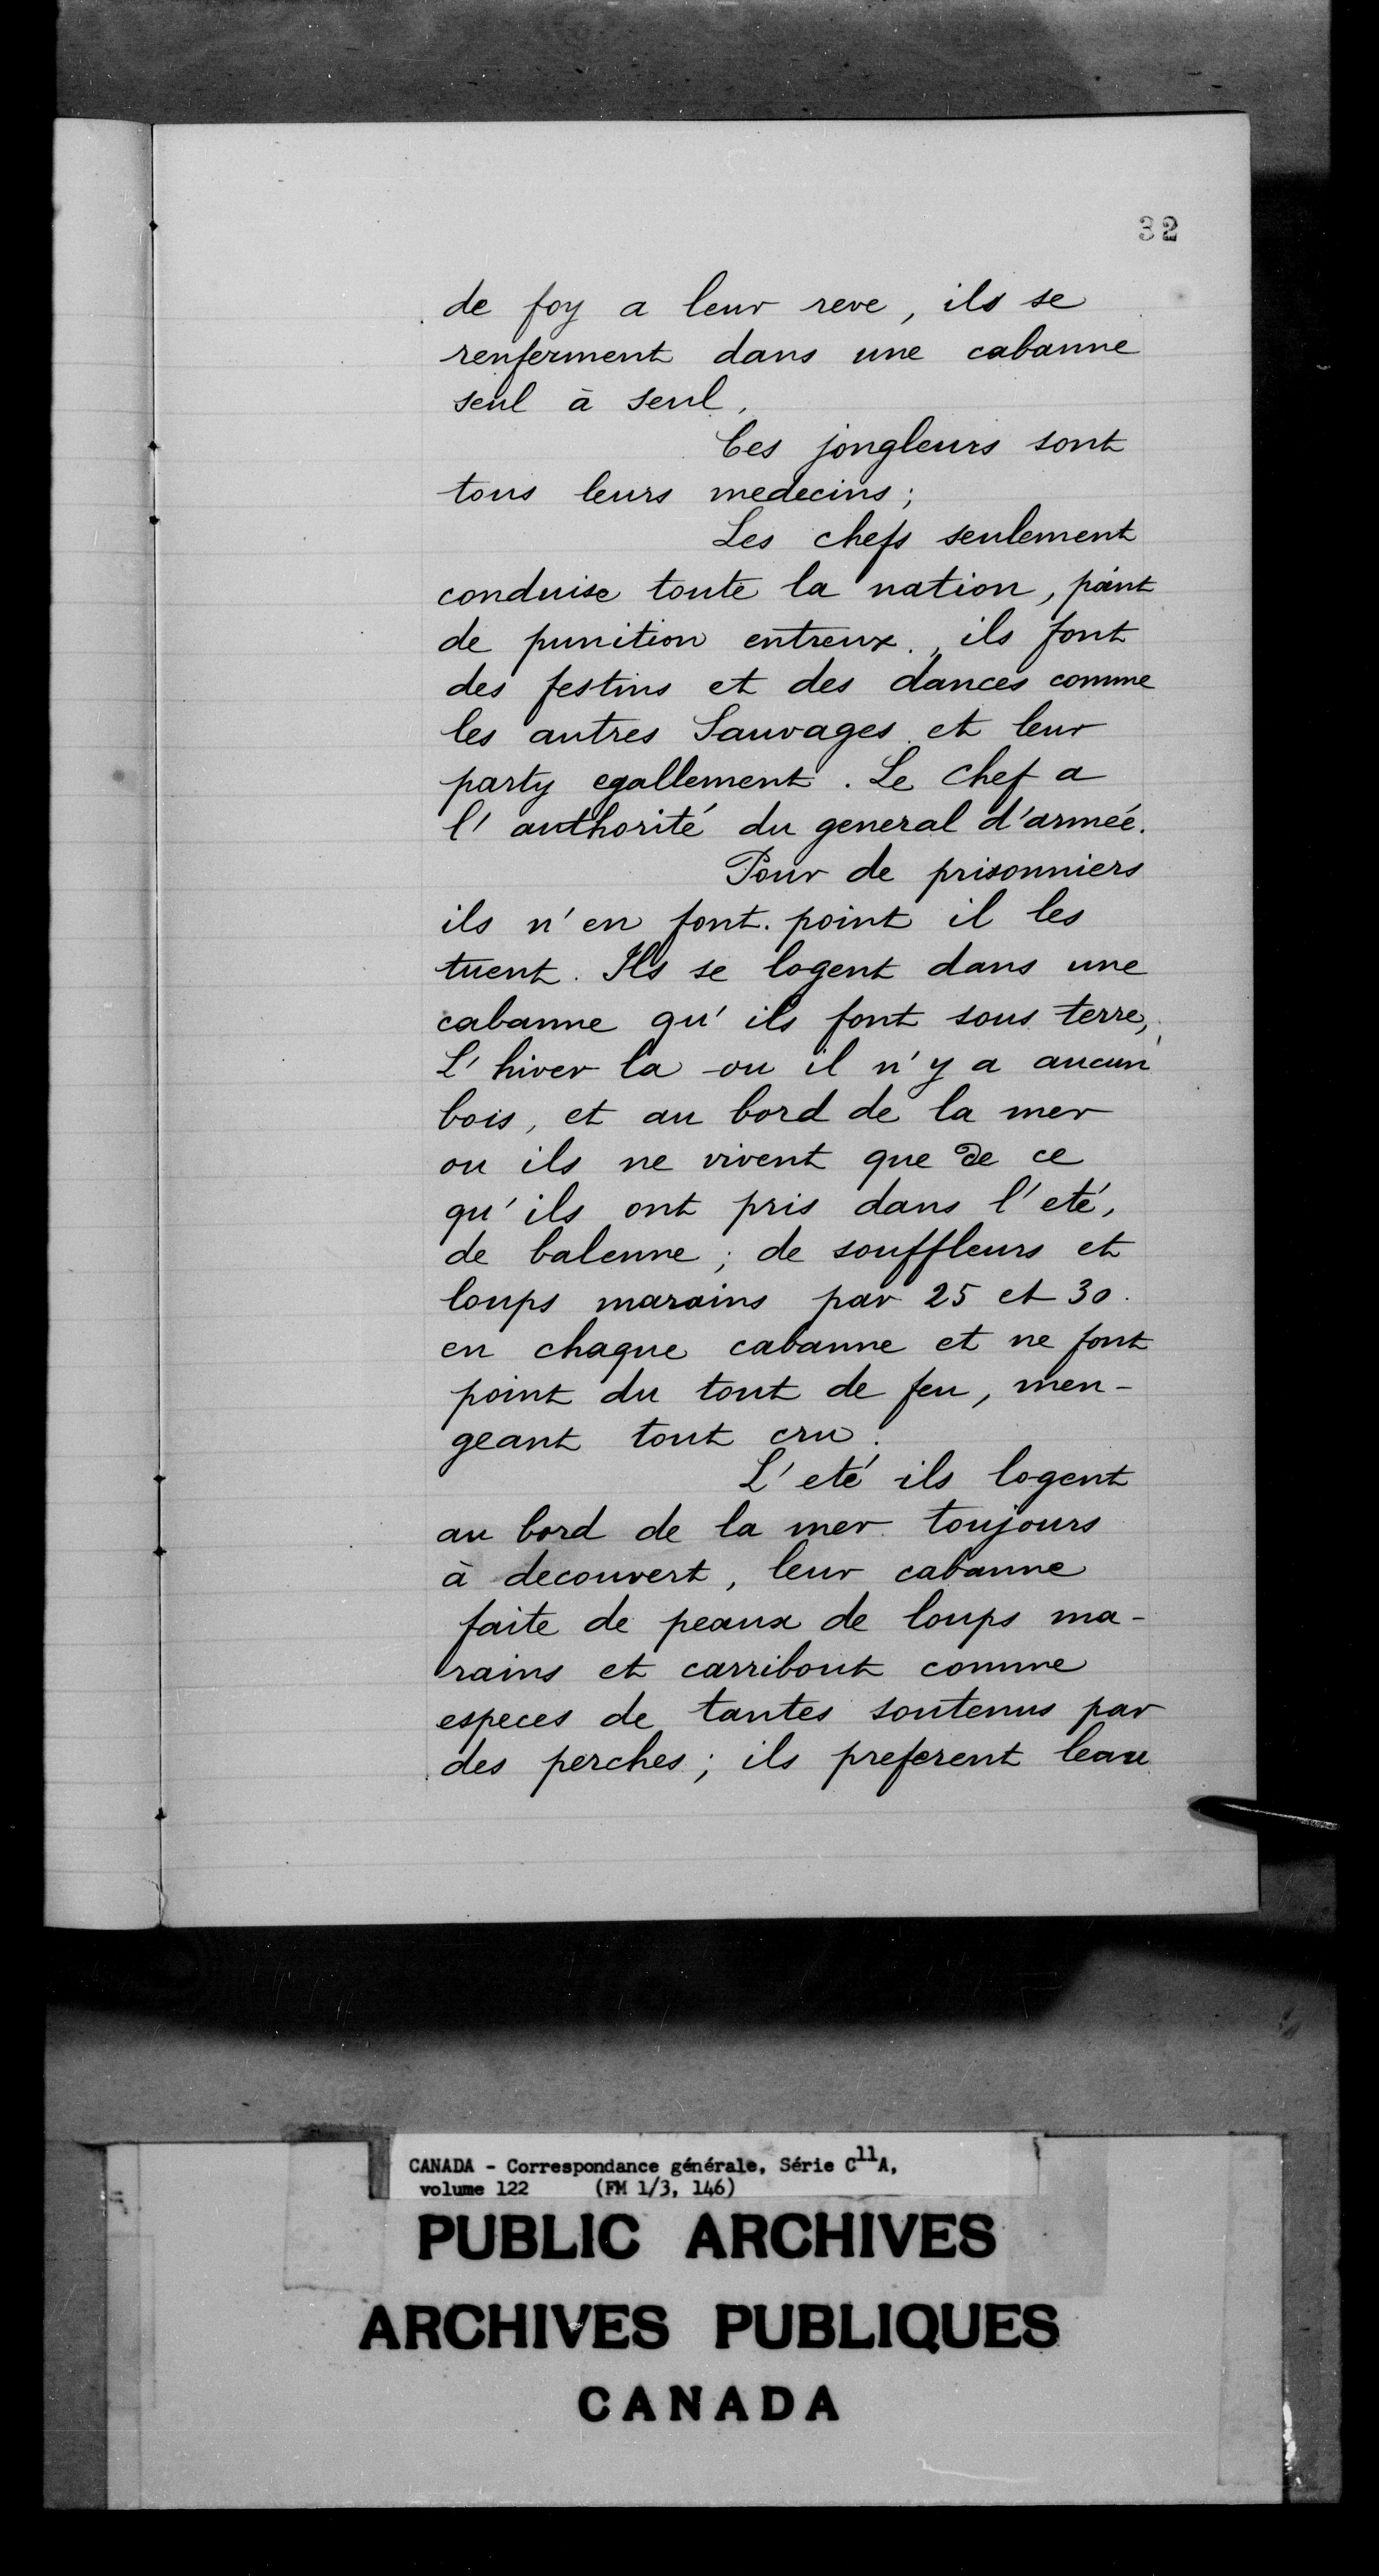 32
de foy a leur reve, ils se
renferment dans une cabanne
seul à seul.
Ces jongleurs sont
tous leurs medecins;
Les chefs seulement
conduise toute la nation, point
de punition entreux., ils font
des festins et des dances comme
les autres Sauvages et leur
party egallement. Le chef a
l'authorité du general d'armeé.
Pour de prisonniers
ils n'en font point il les
tuent. Ils se logent dans une
cabanne qu'ils font sous terre,
L'hiver la ou il n'y a aucun
bois, et au bord de la mer
ou ils ne vivent que de ce
qu'ils ont pris dans l'eté,
de balenne; de souffleurs et
loups marains par 25 et 30.
en chaque cabanne et ne font
point du tout de feu, men-
geant tout cru.
L'eté ils logent
au bord de la mer toujours
à decouvert, leur cabanne
faite de peaux de loups ma-
rains et carribout comme
especes de tantes soutenus par
des perches; ils preferent leau
CANADA - Correspondance générale, Série C11A,
volume 122 (FM 1/3, 146)
PUBLIC ARCHIVES
ARCHIVES PUBLIQUES
CANADA